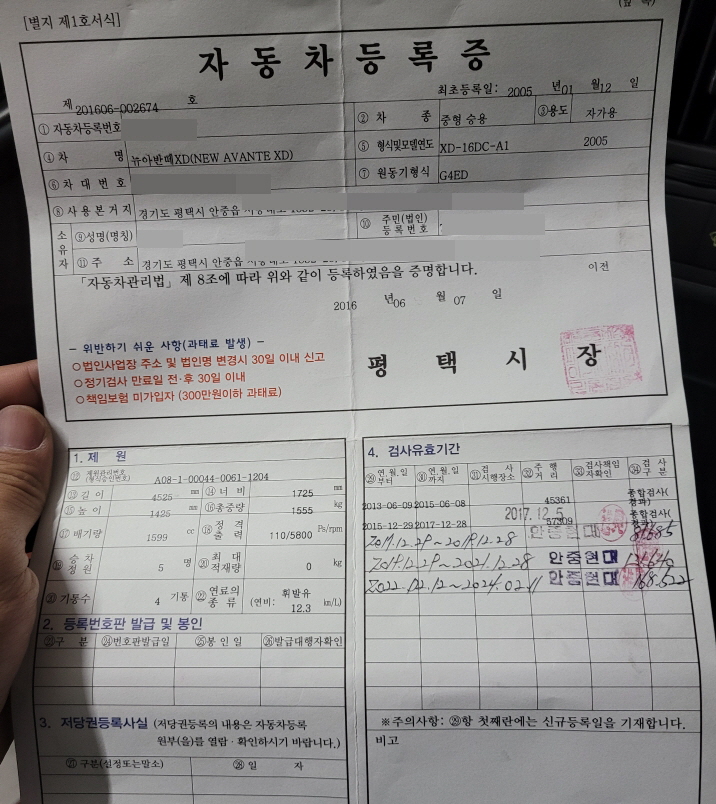 [별지 제1호서식]
자동차등록증
제 201606-002674 호
최초등록일: 2005 년 01 월 12 일
① 자동차등록번호
② 차 종 중형 승용
③용도 자가용
④ 차 명 뉴아반떼XD(NEW AVANTE XD)
⑤ 형식및모델연도 XD-16DC-A1 2005
⑥ 차 대 번 호
⑦ 원동기형식 G4ED
⑧ 사 용 본 거 지 경기도 평택시 안중읍
소유자
⑨성명(명칭)
⑩ 주민(법인)등록번호
⑪ 주 소 경기도 평택시 안중읍
「자동차관리법」 제 8조에 따라 위와 같이 등록하였음을 증명합니다.
이전
2016 년 06 월 07 일
- 위반하기 쉬운 사항(과태료 발생) -
○법인사업장 주소 및 법인명 변경시 30일 이내 신고
○정기검사 만료일 전·후 30일 이내
○책임보험 미가입자 (300만원이하 과태료)
평 택 시 장
1. 제 원
⑫ 제원관리번호(형식승인번호) A08-1-00044-0061-1204
⑬ 길 이 4525 mm ⑭ 너 비 1725 mm
⑮ 높 이 1425 mm ⑯총중량 1555 kg
⑰ 배기량 1599 cc ⑱ 정격출력 110/5800 Ps/rpm
⑲ 승차정원 5 명 ⑳ 최대적재량 0 kg
㉑ 기통수 4 기통 ㉒ 연료의종류 휘발유 (연비: 12.3 km/L)
2. 등록번호판 발급 및 봉인
㉓구 분 ㉔번호판발급일 ㉕봉 인 일 ㉖발급대행자확인
3. 저당권등록사실 (저당권등록의 내용은 자동차등록
원부(을)를 열람·확인하시기 바랍니다.)
㉗ 구분(설정또는말소) ㉘ 일 자
4. 검사유효기간
㉙ 연.월.일 부터 ㉚ 연.월.일 까지 ㉛ 검사시행장소 ㉜ 주행거리 ㉝검사책임자확인 ㉞ 검사구분
2013-06-09 2015-06-08 45361 종합검사(경과)
2017. 12. 5
2015-12-29 2017-12-28 57309 종합검사(경과)
2017.12.29~2019.12.28 안중현대
2019.12.29~2021.12.28 안중현대
2022.02.12~2024.02.11 안중현대 168.522
※주의사항: ㉙항 첫째란에는 신규등록일을 기재합니다.
비고